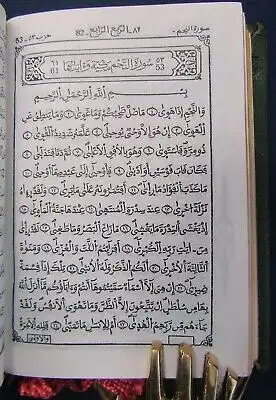 سورة النجم - حزب ٥٣ - 53
٨٢ - الربع الرابع - 82
٥٣ 53 سورة النجم مكية وآياتها ٦١ 61
بِسْمِ اللَّهِ الرَّحْمَٰنِ الرَّحِيمِ
وَالنَّجْمِ إِذَا هَوَىٰ ① مَا ضَلَّ صَاحِبُكُمْ وَمَا غَوَىٰ ② وَمَا يَنطِقُ عَنِ
الْهَوَىٰ ③ إِنْ هُوَ إِلَّا وَحْيٌ يُوحَىٰ ④ عَلَّمَهُ شَدِيدُ الْقُوَىٰ ⑤
ذُو مِرَّةٍ فَاسْتَوَىٰ ⑥ وَهُوَ بِالْأُفُقِ الْأَعْلَىٰ ⑦ ثُمَّ دَنَا فَتَدَلَّىٰ ⑧
فَكَانَ قَابَ قَوْسَيْنِ أَوْ أَدْنَىٰ ⑨ فَأَوْحَىٰ إِلَىٰ عَبْدِهِ مَا أَوْحَىٰ ⑩
مَا كَذَبَ الْفُؤَادُ مَا رَأَىٰ ⑪ أَفَتُمَارُونَهُ عَلَىٰ مَا يَرَىٰ ⑫ وَلَقَدْ رَآهُ
نَزْلَةً أُخْرَىٰ ⑬ عِندَ سِدْرَةِ الْمُنتَهَىٰ ⑭ عِندَهَا جَنَّةُ الْمَأْوَىٰ
⑮ إِذْ يَغْشَى السِّدْرَةَ مَا يَغْشَىٰ ⑯ مَا زَاغَ الْبَصَرُ وَمَا طَغَىٰ ⑰ لَقَدْ رَأَىٰ
مِنْ آيَاتِ رَبِّهِ الْكُبْرَىٰ ⑱ أَفَرَأَيْتُمُ اللَّاتَ وَالْعُزَّىٰ ⑲ وَمَنَاةَ
الثَّالِثَةَ الْأُخْرَىٰ ⑳ أَلَكُمُ الذَّكَرُ وَلَهُ الْأُنثَىٰ ㉑ تِلْكَ إِذًا قِسْمَةٌ
ضِيزَىٰ ㉒ إِنْ هِيَ إِلَّا أَسْمَاءٌ سَمَّيْتُمُوهَا أَنتُمْ وَآبَاؤُكُم مَّا أَنزَلَ اللَّهُ
بِهَا مِن سُلْطَانٍ إِن يَتَّبِعُونَ إِلَّا الظَّنَّ وَمَا تَهْوَى الْأَنفُسُ وَلَقَدْ
جَاءَهُم مِّن رَّبِّهِمُ الْهُدَىٰ ㉓ أَمْ لِلْإِنسَانِ مَا تَمَنَّىٰ ㉔ فَلِلَّهِ الْآخِرَةُ
وَالْأُولَىٰ